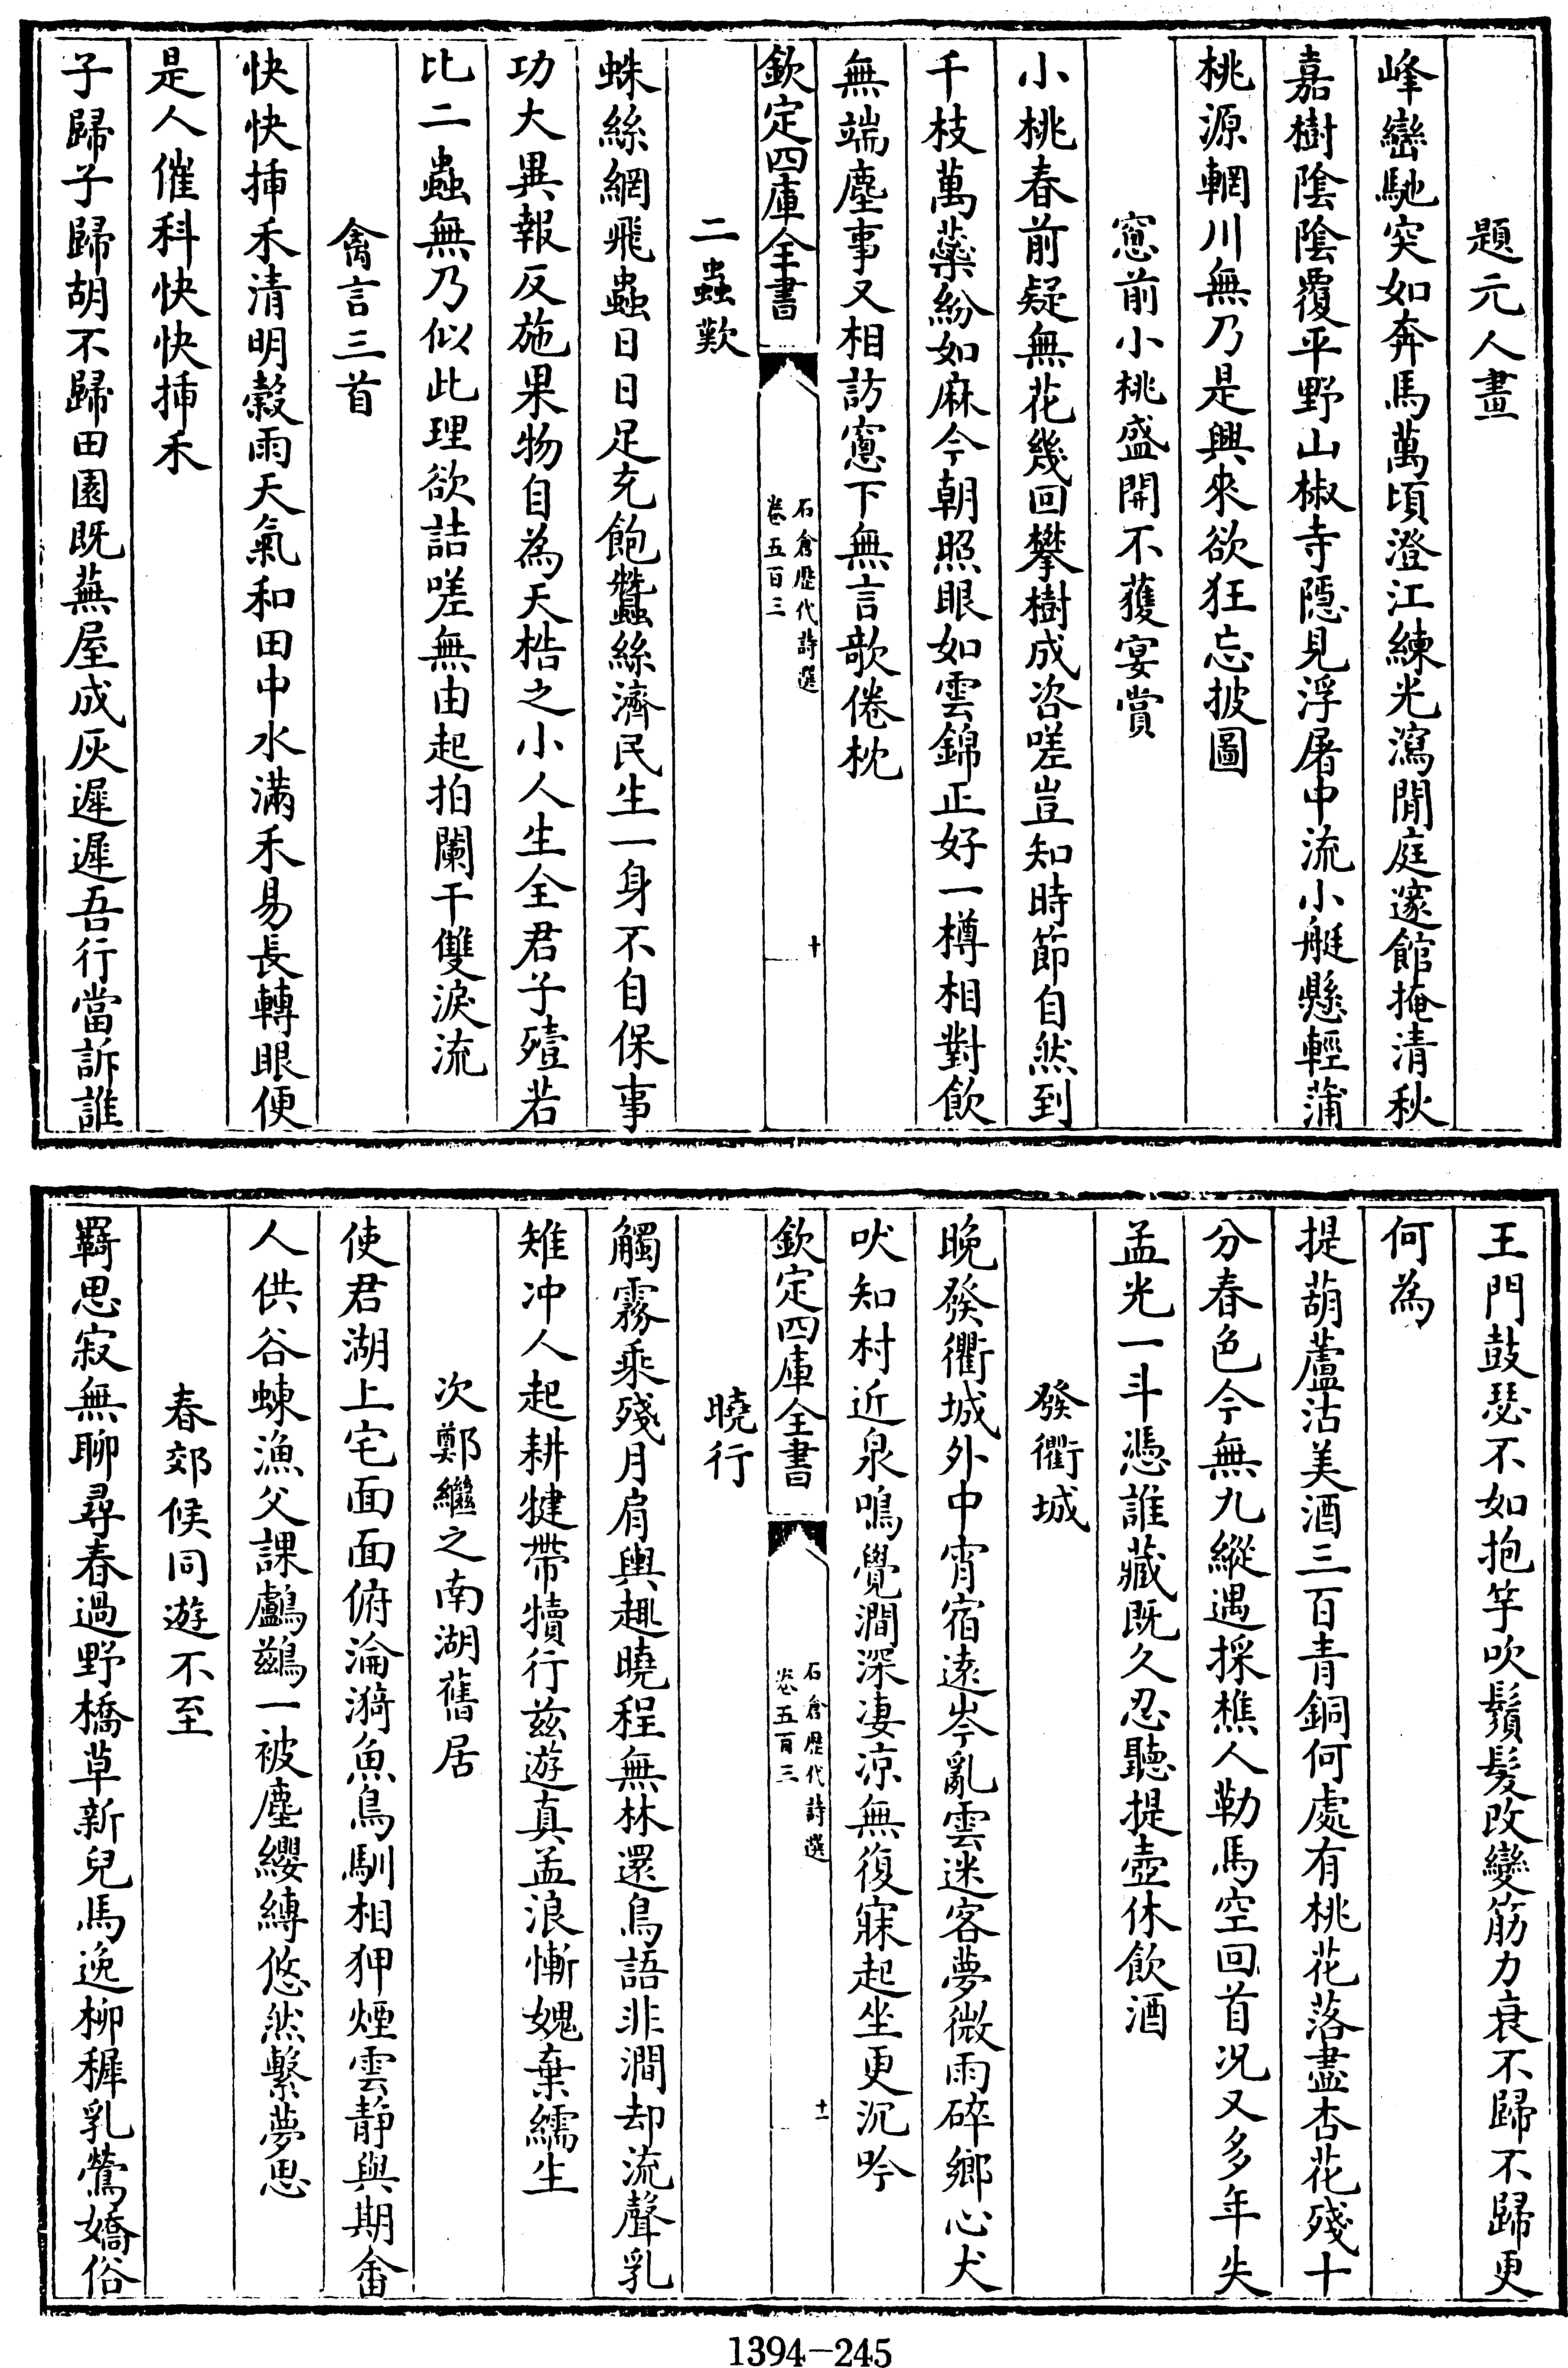 題元人畫
峰巒馳突如奔馬萬頃澄江練光瀉閒庭邃館掩清秋
嘉樹隂隂覆平野山椒寺隱見浮屠中流小艇懸輕蒲
桃源輞川無乃是興來欲狂忘披圖
窓前小桃盛開不獲宴賞
小桃春前疑無花幾回攀樹成咨嗟豈知時節自然到
千枝萬蘂紛如麻今朝照眼如雲錦正好一樽相對飲
無端塵事又相訪窓下無言欹倦枕
欽定四庫全書
石倉歷代詩選
卷五百三
十
二蟲歎
蛛絲網飛蟲日日足充飽蠶絲濟民生一身不自保事
功大異報反施果物自為天梏之小人生全君子殪若
比二蟲無乃似此理欲詰嗟無由起拍闌干雙淚流
禽言三首
快快揷禾清明榖雨天氣和田中水滿禾易長轉眼便
是人催科快快揷禾
子歸子歸胡不歸田園既蕪屋成灰遲遲吾行當訴誰
王門鼓瑟不如抱竽吹鬚髮改變筋力衰不歸不歸更
何為
提葫蘆沽美酒三百青銅何處有桃花落盡杏花殘十
分春色今無九縱遇採樵人勒馬空回首况又多年失
孟光一斗憑誰藏既久忍聽提壺休飲酒
發衢城
晚發衢城外中宵宿逺岑亂雲迷客夢微雨碎鄉心犬
吠知村近泉鳴覺澗深凄凉無復寐起坐更沉吟
欽定四庫全書
石倉歷代詩選
卷五百三
十一
曉行
觸霧乘殘月肩輿趣曉程無林還鳥語非澗却流聲乳
雉冲人起耕犍帶犢行兹遊真孟浪慚媿棄繻生
次鄭繼之南湖舊居
使君湖上宅面面俯淪漪魚鳥馴相狎煙雲静與期畬
人供谷蝀漁父課鸕鷀一被塵纓縛悠然繫夢思
春郊候同遊不至
羇思寂無聊尋春過野橋草新兒馬逸柳穉乳鶯嬌俗
1394-245